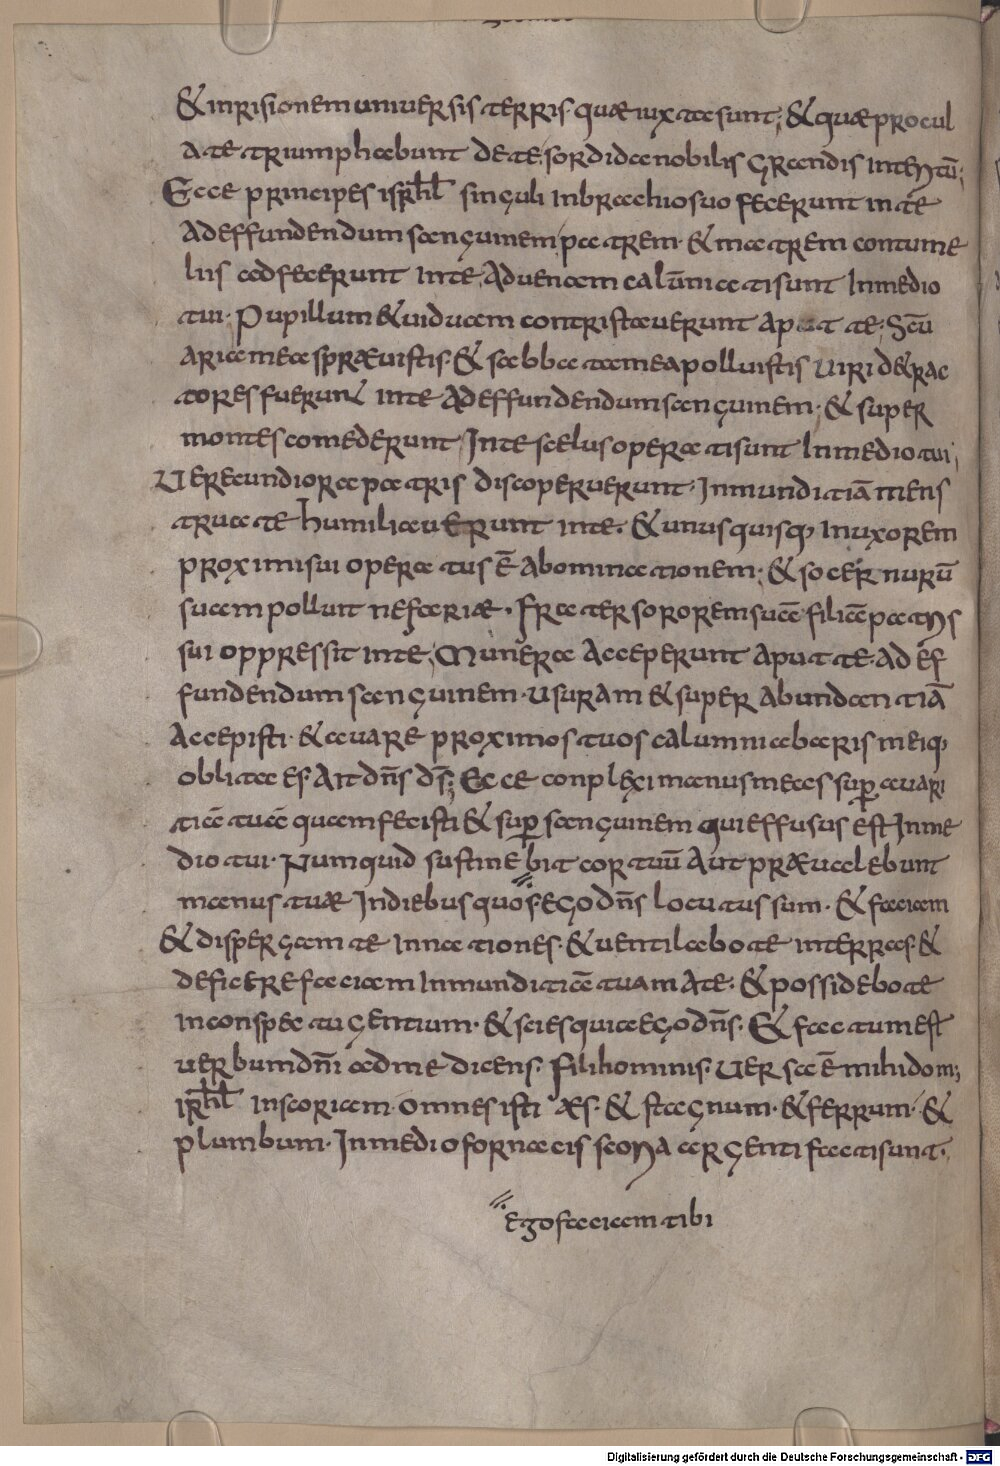 & inrisionem universis terris. quae iuxta te sunt; & quae procul
a te triumphabunt de te; sordida nobilis grandis interitū;
Ecce principes isrhl singuli inbrachio suo fecerunt in te
Adeffundendum sanguinem patrem. & matrem contume
liis adfecerunt inte, Advenam calūmniati sunt Inmedio
tui. Pupillum & viduam contristaverunt aput te. Scū
aria mea sprævistis. & sabbata mea polluistis viri detrac
tores fuerunt inte Adeffundendum sanguinem. & super
montes comederunt Inte scelus operati sunt Inmedio tui,
Verecundiora patris discoperuerunt. Inmunditiā mens
truatae humiliaverunt inte. & unusquisq; inuxorem
proximi sui operatus ē Abominationem. & socer nurū
suam polluit nefariae. Frater sororem suā filiā patris
sui oppressit inte, Munera Acceperunt aput te. Ad ef
fundendum sanguinem. usuram & superabundantiā
Accepisti. & avare proximos tuos calumniabaris meiq;
oblita es. Ait dn̄s ds̄; Ecce conplexi manus meas sup avari
tiā tuā quam fecisti & sup sanguinem qui effusus est Inme
dio tui. Numquid sustinebit cor tuū Aut prævalebunt
manus tuæ Indiebus quos. Ego dn̄s locutus sum. & faciam
& dispergam te innationes. & ventilabo te interras. &
deficere faciam inmunditiā tuam Ate. & possidebo te
inconspectu gentium. & scies quia ego dn̄s. & factum est
verbum dn̄i adme dicens. Fili hominis. Versa ē mihi dom;
irhl inscoriam. omnes isti æs. & stagnum. & ferrum. &
plumbum. Inmedio fornacis scoria argenti facti sunt.
Ego faciam tibi
Digitalisierung gefördert durch die Deutsche Forschungsgemeinschaft - DFG